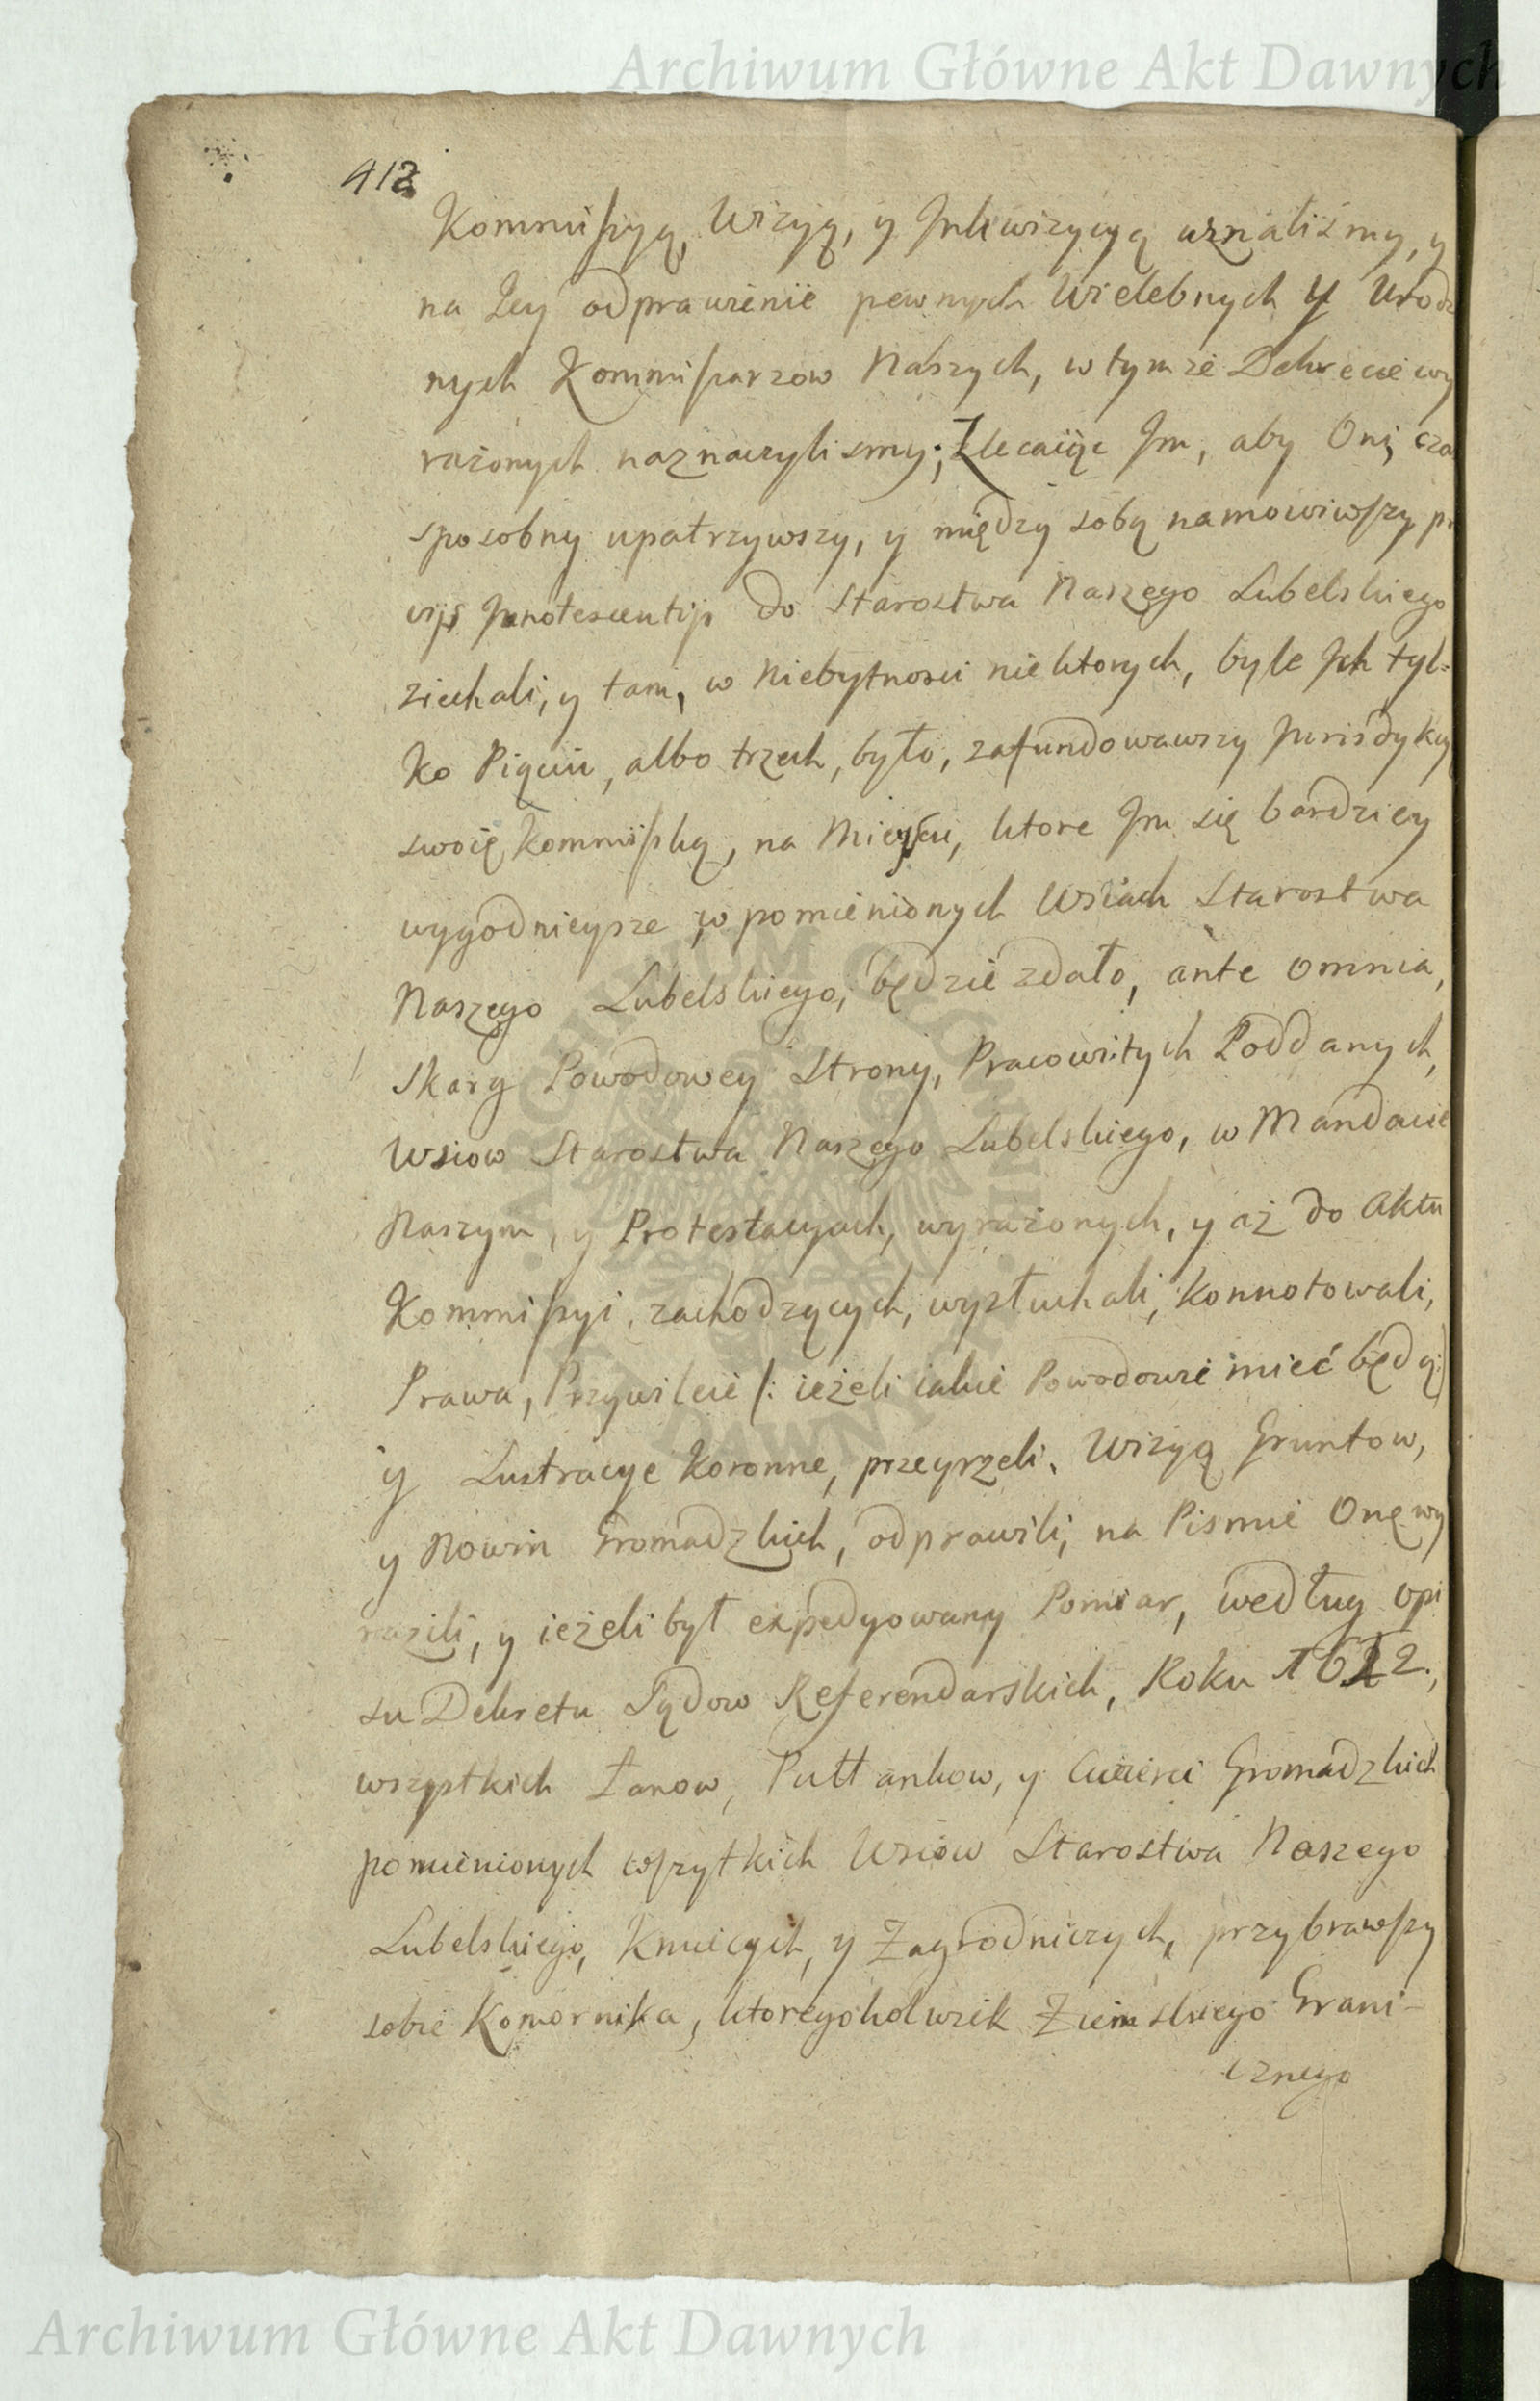 Archiwum Główne Akt Dawnych
412
Kommissyą, Wizyą, y Inkwizycyą uznaliśmy, y
na Iey odprawienie pewnych Wielebnych y Urodz
nych Kommissarzow Naszych, w tymze Dekrecie wy
rażonych naznaczylismy; Zlecaiąc Im, aby Oni, cza
sposobny upatrzywszy, y między sobą namowiwszy pr
vijs Innotescentijs do Starostwa Naszego Lubelskiego
ziechali, y tam, w Niebytnosci niektorych, byle Ich tyl=
ko Pięciu, albo trzech, było, zafundowawszy Jurisdykcy
swoię Kommisską, na Mieyscu, ktore Im się bardziey
wygodnieysze w pomienionych Wsiach Starostwa
Naszego Lubelskiego, będzie zdało, ante omnia,
Skarg Powodowey Strony, Pracowitych Poddanych,
Wsiow Starostwa Naszego Lubelskiego, w Mandacie
Naszym, y Protestacyach, wyrażonych, y aż do Aktu
Kommissyi zachodzących, wysłuchali, konnotowali,
Prawa, Przywileie /: ieżeli iakie Powodowie mieć będą :/
y Lustracye Koronne, przeyrzeli, Wizyą Gruntow,
y Nowin Gromadzkich, odprawili, na Pismie Onę wy
razili, y ieżeli był expedyowany Pomiar, według opi
su Dekretu Sądow Referendarskich, Roku 1622.,
wszystkich Łanow, Pułłankow, y Cwierci Gromadzkich
pomienionych wszytkich Wsiow Starostwa Naszego
Lubelskiego, Kmiecych, y Zagrodniczych, przybrawszy
sobie Komornika, ktoregokolwiek Ziemskiego Grani-
cznego
ARCHIWUM GŁÓWNE AKT DAWNYCH
Archiwum Główne Akt Dawnych